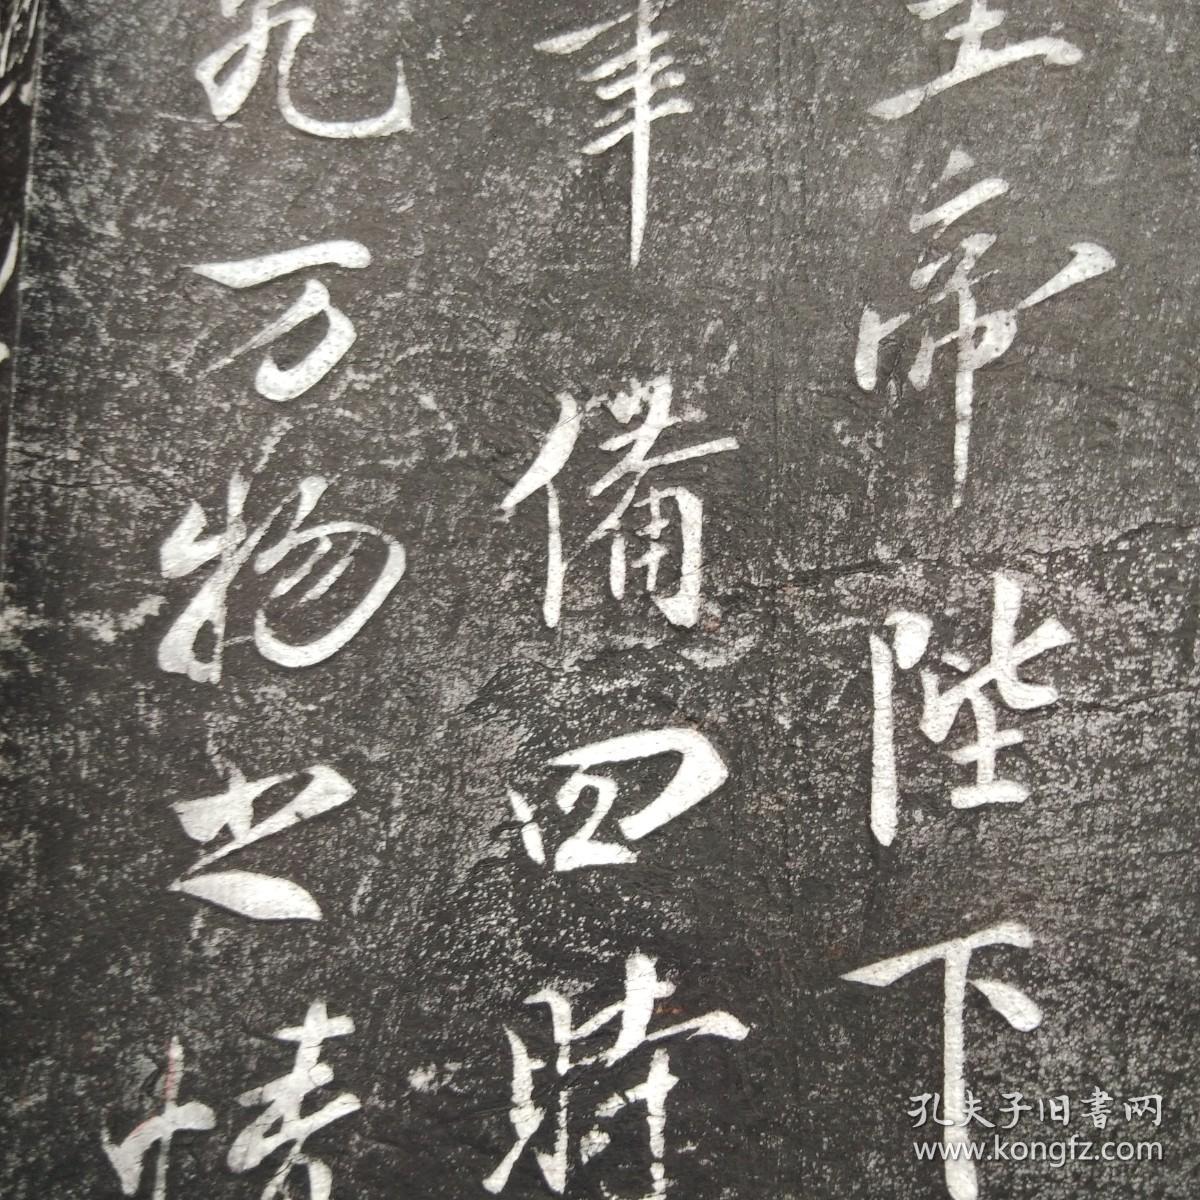 皇帝陛下
備四時
究万物之情
孔夫子旧書网
www.kongfz.com